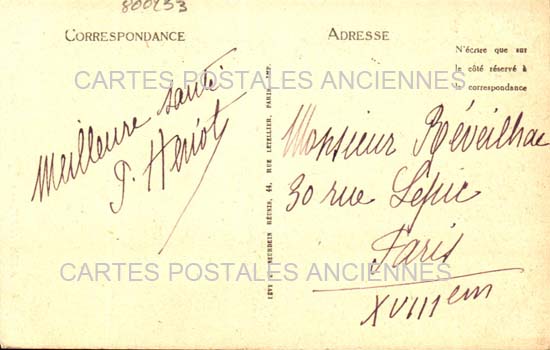 800253
CORRESPONDANCE
Meilleure santé
P. Henot
LÉVY & NEURDEIN RÉUNIS, 44, RUE LETELLIER, PARIS. IMP.
ADRESSE
N'écrire que sur
le côté réservé à
la correspondance
Monsieur Réveilhac
30 rue Lepic
Paris
XVIIIem
CARTES POSTALES ANCIENNES
CARTES POSTALES ANCIENNES